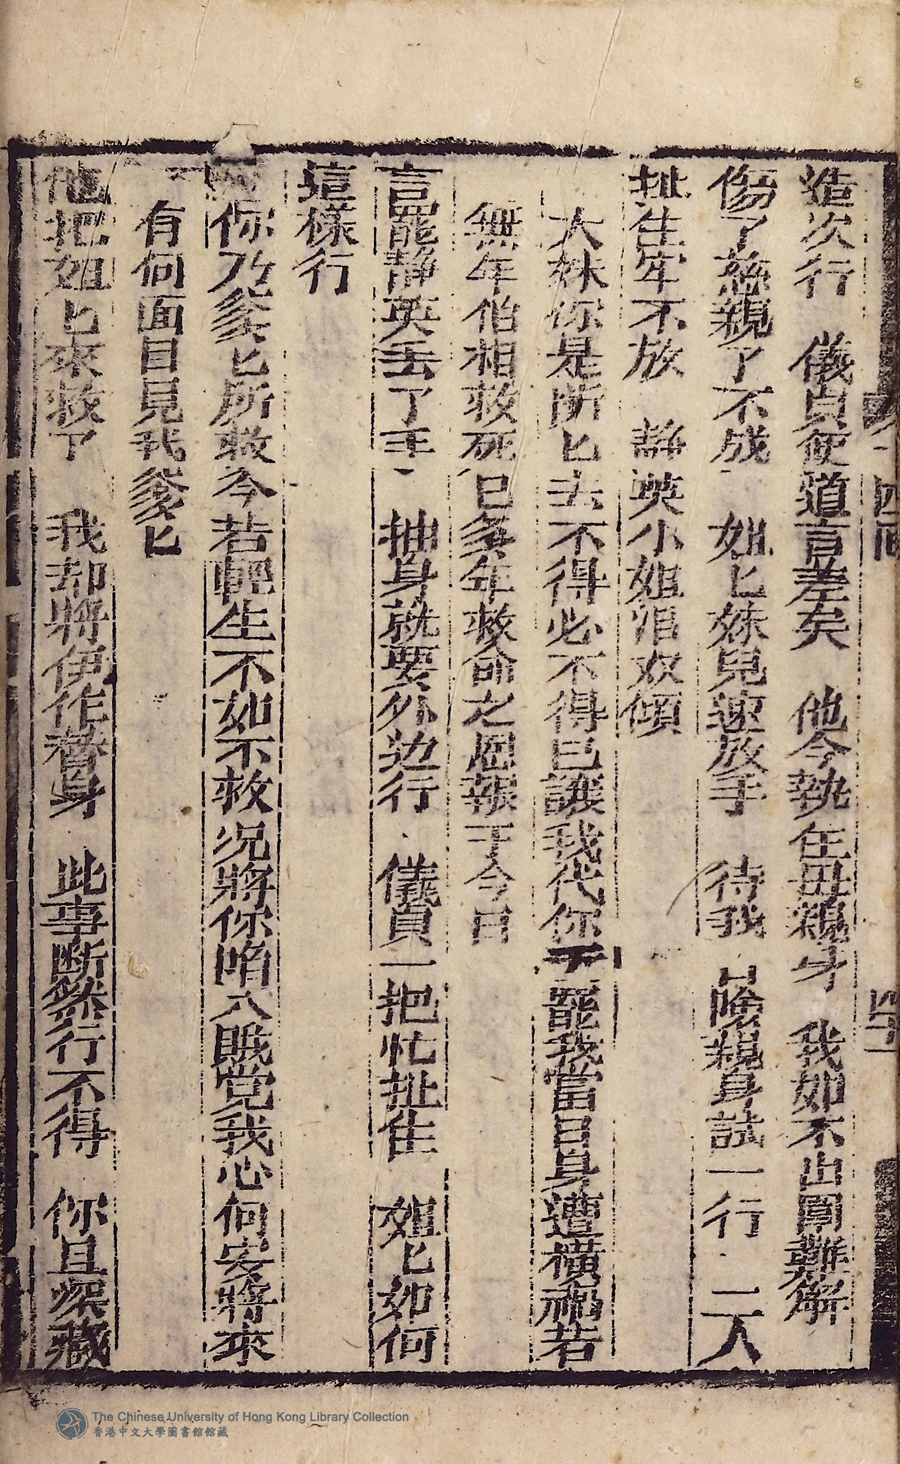 造次行　儀貞便道言差矣　他今執住毋親身　我如不出圍難解
傷了慈親了不成　姐匕妹兒速放手　待我冐險親身試一行　二人
扯住牢不放　静英小姐泪双傾
大妹你是斷匕去不得必不得已讓我代你 罷我當日身遭橫禍若
無年伯相救死已多年救命之恩報于今日
言罷静英丟了手　抽身就要外边行　儀貞一把忙扯住　姐匕如何
這樣行
你乃爹匕所救今若輕生不如不救况將你陷入賊党我心何安將來
有何面目見我爹匕
他把姐匕來救了　我却將伊作替身　此事断然行不得　你且深藏
四囬
The Chinese University of Hong Kong Library Collection
香港中文大學圖書館館藏